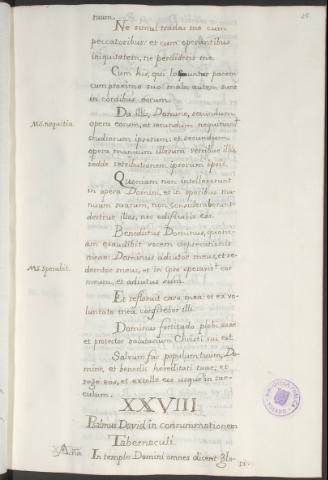 tuum.
Ne simul tradas me cum
peccatoribus: et cum operantibus
iniquitatem, ne perdideris me.
Cum his, qui loquuntur pacem
cum proximo suo: mala autem sunt
in cordibus eorum.
Da illis, Domine, secundum
opera eorum, et secundum nequitiam
MS. nequitia.
studiorum ipsorum; et secundum
opera manuum illorum retribue illis,
redde retributionem ipsorum ipsis.
Quoniam non intellexerunt
in opera Domini, et in operibus ma-
nuum suarum, non considerabunt:
destrue illos, nec edificabis eos.
Benedictus Dominus, quoni-
am exaudibit vocem deprecationis
meae: Dominus adiutor meus, et re-
demtor meus, et in ipso speravit cor
MS. sperabit.
meum, et adiutus sum.
Et refloruit caro mea: et ex vo-
luntate mea confitebor illi.
Dominus fortitudo plebi suae:
et protector salutarium Christi sui est.
Salvum fac populum tuum, Do-
mine, et benedic hereditati tuae; et
rege eos, et extolle eos usque in sae-
culum.
XXVIII
Psalmus David in consummationem
Tabernaculi.
In templo Domini omnes dicent glo-